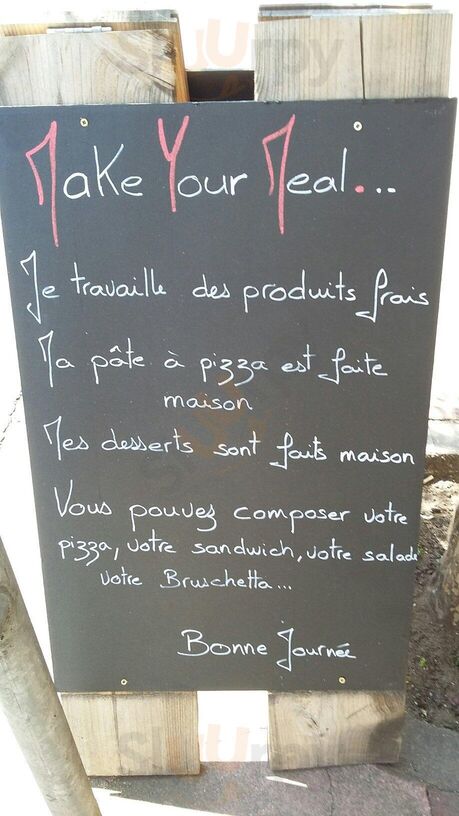 Make Your Meal...
Je travaille des produits frais
Ma pâte à pizza est faite
maison
Mes desserts sont faits maison
Vous pouvez composer votre
pizza, votre sandwich, votre salade
votre Bruschetta...
Bonne Journée